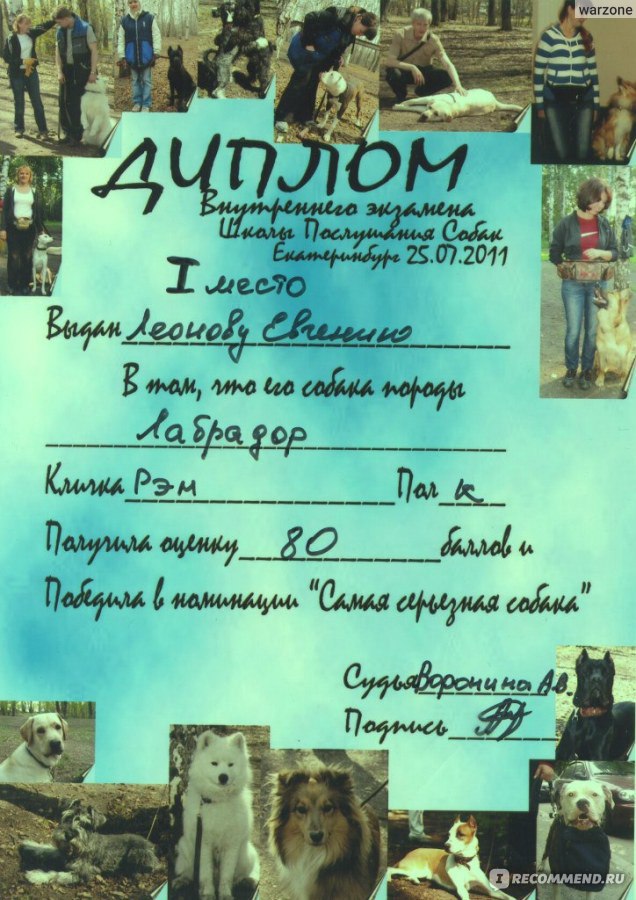 warzone
ДИПЛОМ
Внутреннего экзамена
Школы Послушания Собак
Екатеринбург 25.07.2011
I место
Выдан Леонову Евгению
В том, что его собака породы
Лабрадор
Кличка Рэм Пол К
Получила оценку 80 баллов и
Победила в номинации "Самая серьезная собака"
Судья Воронина А.В.
Подпись
IRECOMMEND.RU